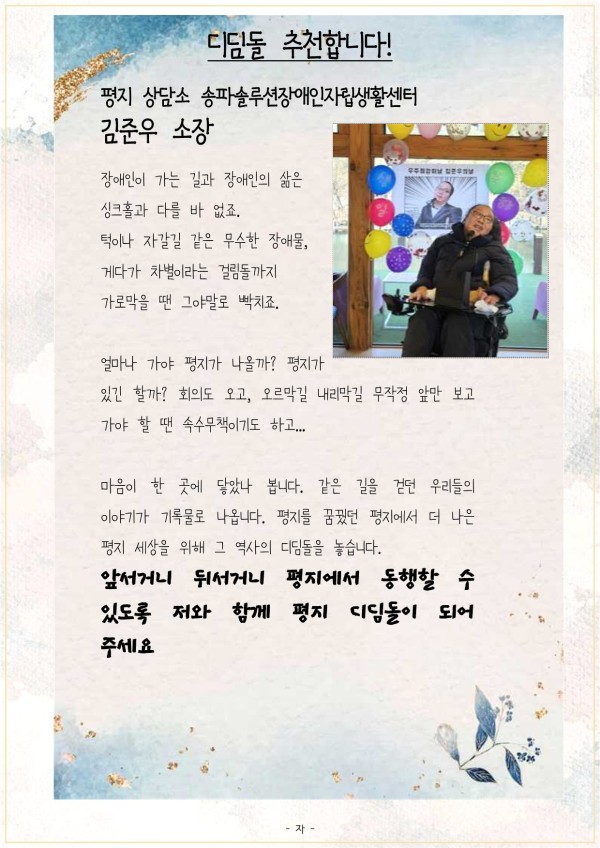 디딤돌 추천합니다!
평지 상담소 송파솔루션장애인자립생활센터
김준우 소장
장애인이 가는 길과 장애인의 삶은
싱크홀과 다를 바 없죠.
턱이나 자갈길 같은 무수한 장애물,
게다가 차별이라는 걸림돌까지
가로막을 땐 그야말로 빡치죠.
얼마나 가야 평지가 나올까? 평지가
있긴 할까? 회의도 오고, 오르막길 내리막길 무작정 앞만 보고
가야 할 땐 속수무책이기도 하고...
마음이 한 곳에 닿았나 봅니다. 같은 길을 걷던 우리들의
이야기가 기록물로 나옵니다. 평지를 꿈꿨던 평지에서 더 나은
평지 세상을 위해 그 역사의 디딤돌을 놓습니다.
앞서거니 뒤서거니 평지에서 동행할 수
있도록 저와 함께 평지 디딤돌이 되어
주세요
- 자 -